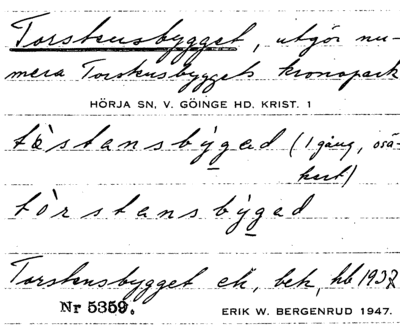 Torstensbygget, utgör nu-
mera Torstensbyggets kronopark
HÖRJA SN, V. GÖINGE HD. KRIST. 1
tòstansbýgad (1 gång, osä-
kert)
tòrstansbýgad
Torstensbygget ek, bek, hb 1937
Nr 5359.
ERIK W. BERGENRUD 1947.